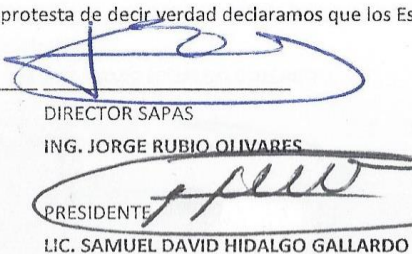 protesta de decir verdad declaramos que los Es
DIRECTOR SAPAS
ING. JORGE RUBIO OLIVARES
PRESIDENTE
LIC. SAMUEL DAVID HIDALGO GALLARDO